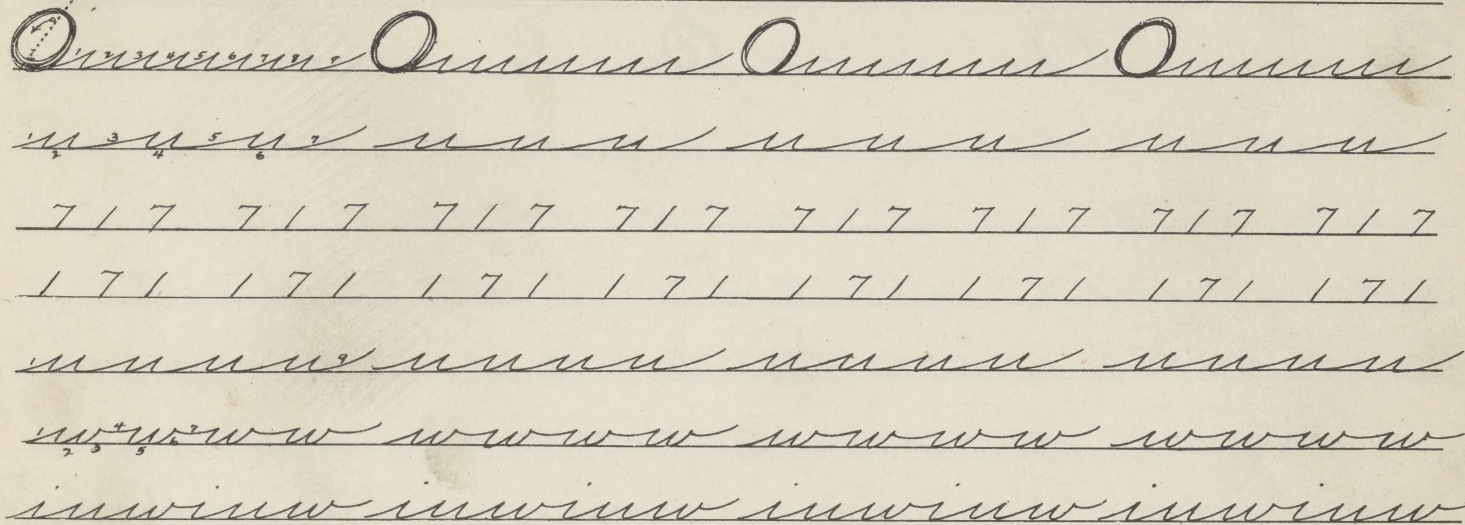 O 1 2 3 4 5 6 7 8 9 O O O
1 3 5 7
uuu uuu uuu uuu
2 4 6
7 1 7 7 1 7 7 1 7 7 1 7 7 1 7 7 1 7 7 1 7 7 1 7
1 7 1 1 7 1 1 7 1 1 7 1 1 7 1 1 7 1 1 7 1 1 7 1
1 uuuu 9 uuuu uuuu uuuu
1 4 7
wwww wwww wwww wwww
2 3 5 6
iuwiuw iuwiuw iuwiuw iuwiuw